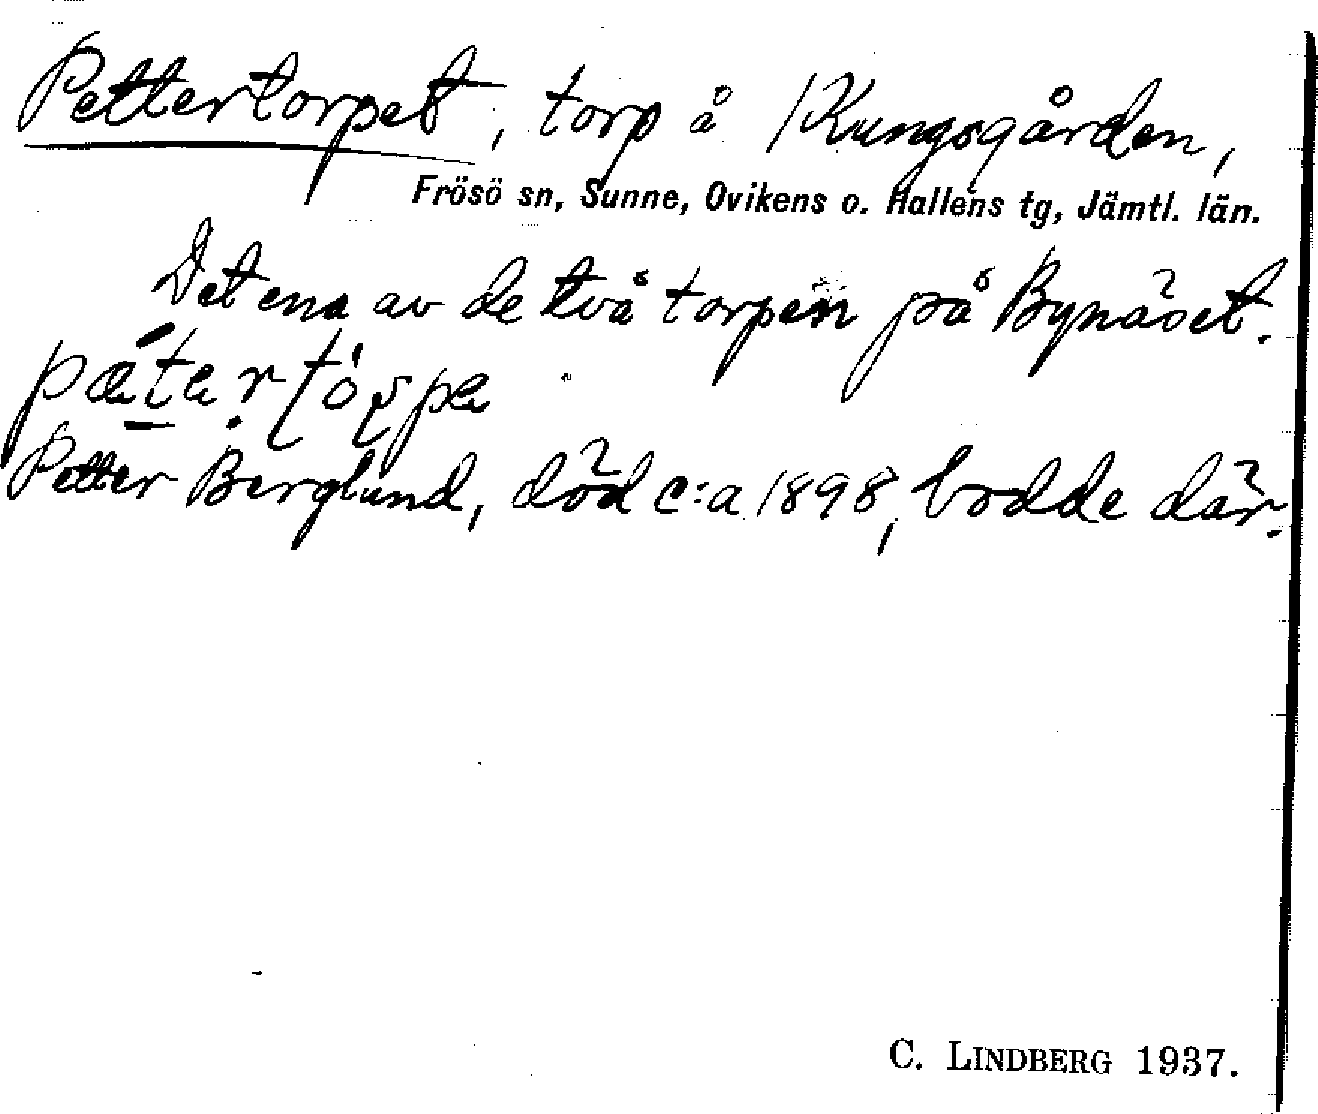 Pettertorpet, torp å Kungsgården,
Frösö sn, Sunne, Ovikens o. Hallens tg, Jämtl. län.
Det ena av de två torpen på Bynäset.
Petter Berglund, död c:a 1898, bodde där.
C. LINDBERG 1937.